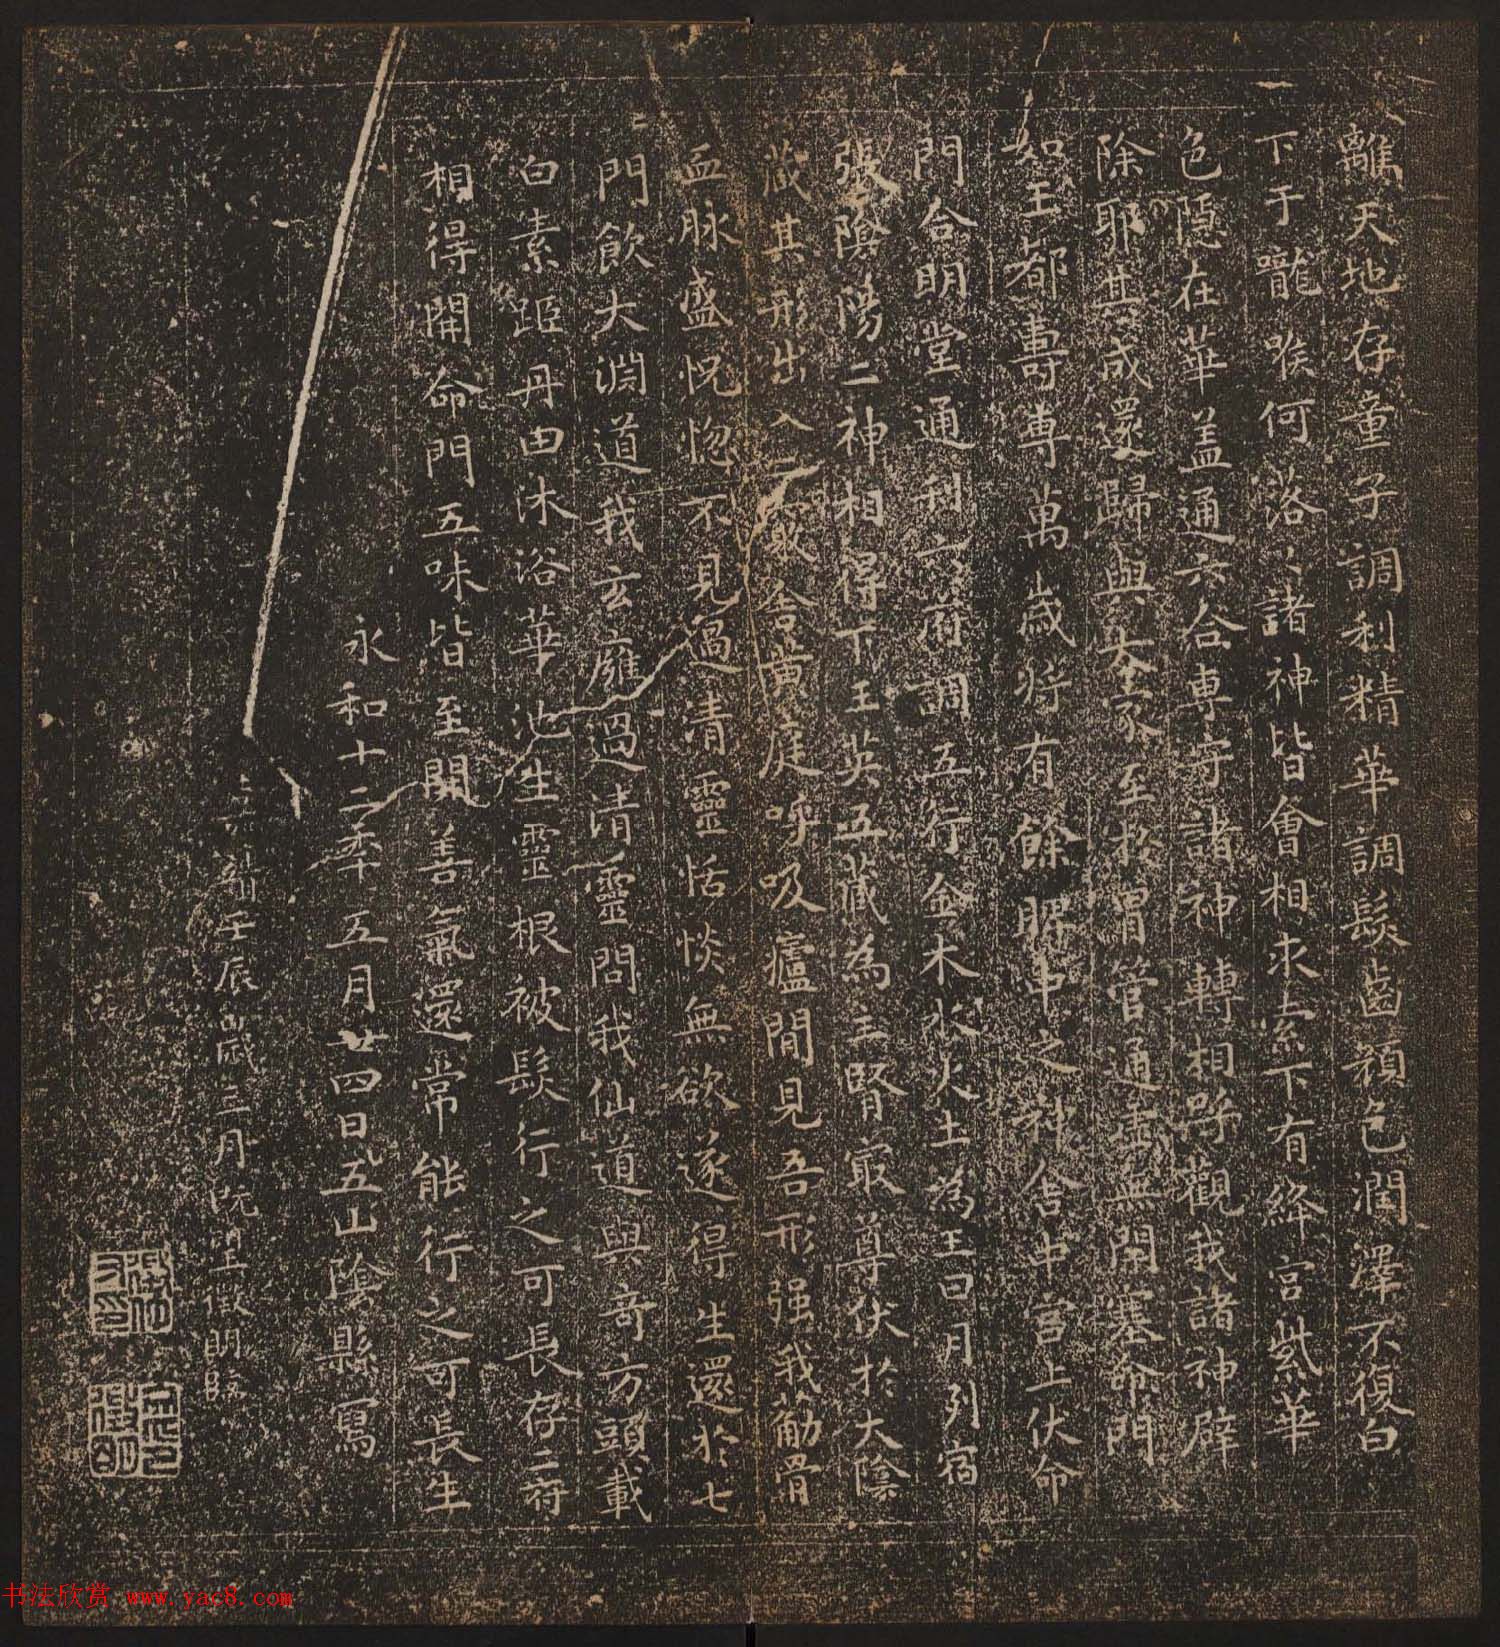 離天地存童子調利精華調髮齒顏色潤澤不復白
下于嚨喉何落〻諸神皆會相求索下有絳宮紫華
色隱在華蓋通六合專守諸神轉相呼觀我諸神辟
除耶其成還歸與大家至於胃管通虛無閉塞命門
如王都壽專萬歲將有餘脾中之神舍中宮上伏命
門合明堂通利六府調五行金木水火土為王日月列宿
張陰陽二神相得下玉英五藏為主腎寂尊伏於大陰
藏其形出入二竅舍黃庭呼吸廬間見吾形强我筋骨
血脉盛怳惚不見過清靈恬惔無欲遂得生還於七
門飲大淵道我玄膺過清靈問我仙道與奇方頭載
白素距丹田沐浴華池生靈根被髮行之可長存二府
相得開命門五味皆至開善氣還常能行之可長生
永和十二年五月廿四日五山陰縣寫
壬辰歲三月既望徵明臨
書法欣赏 www.yac8.com